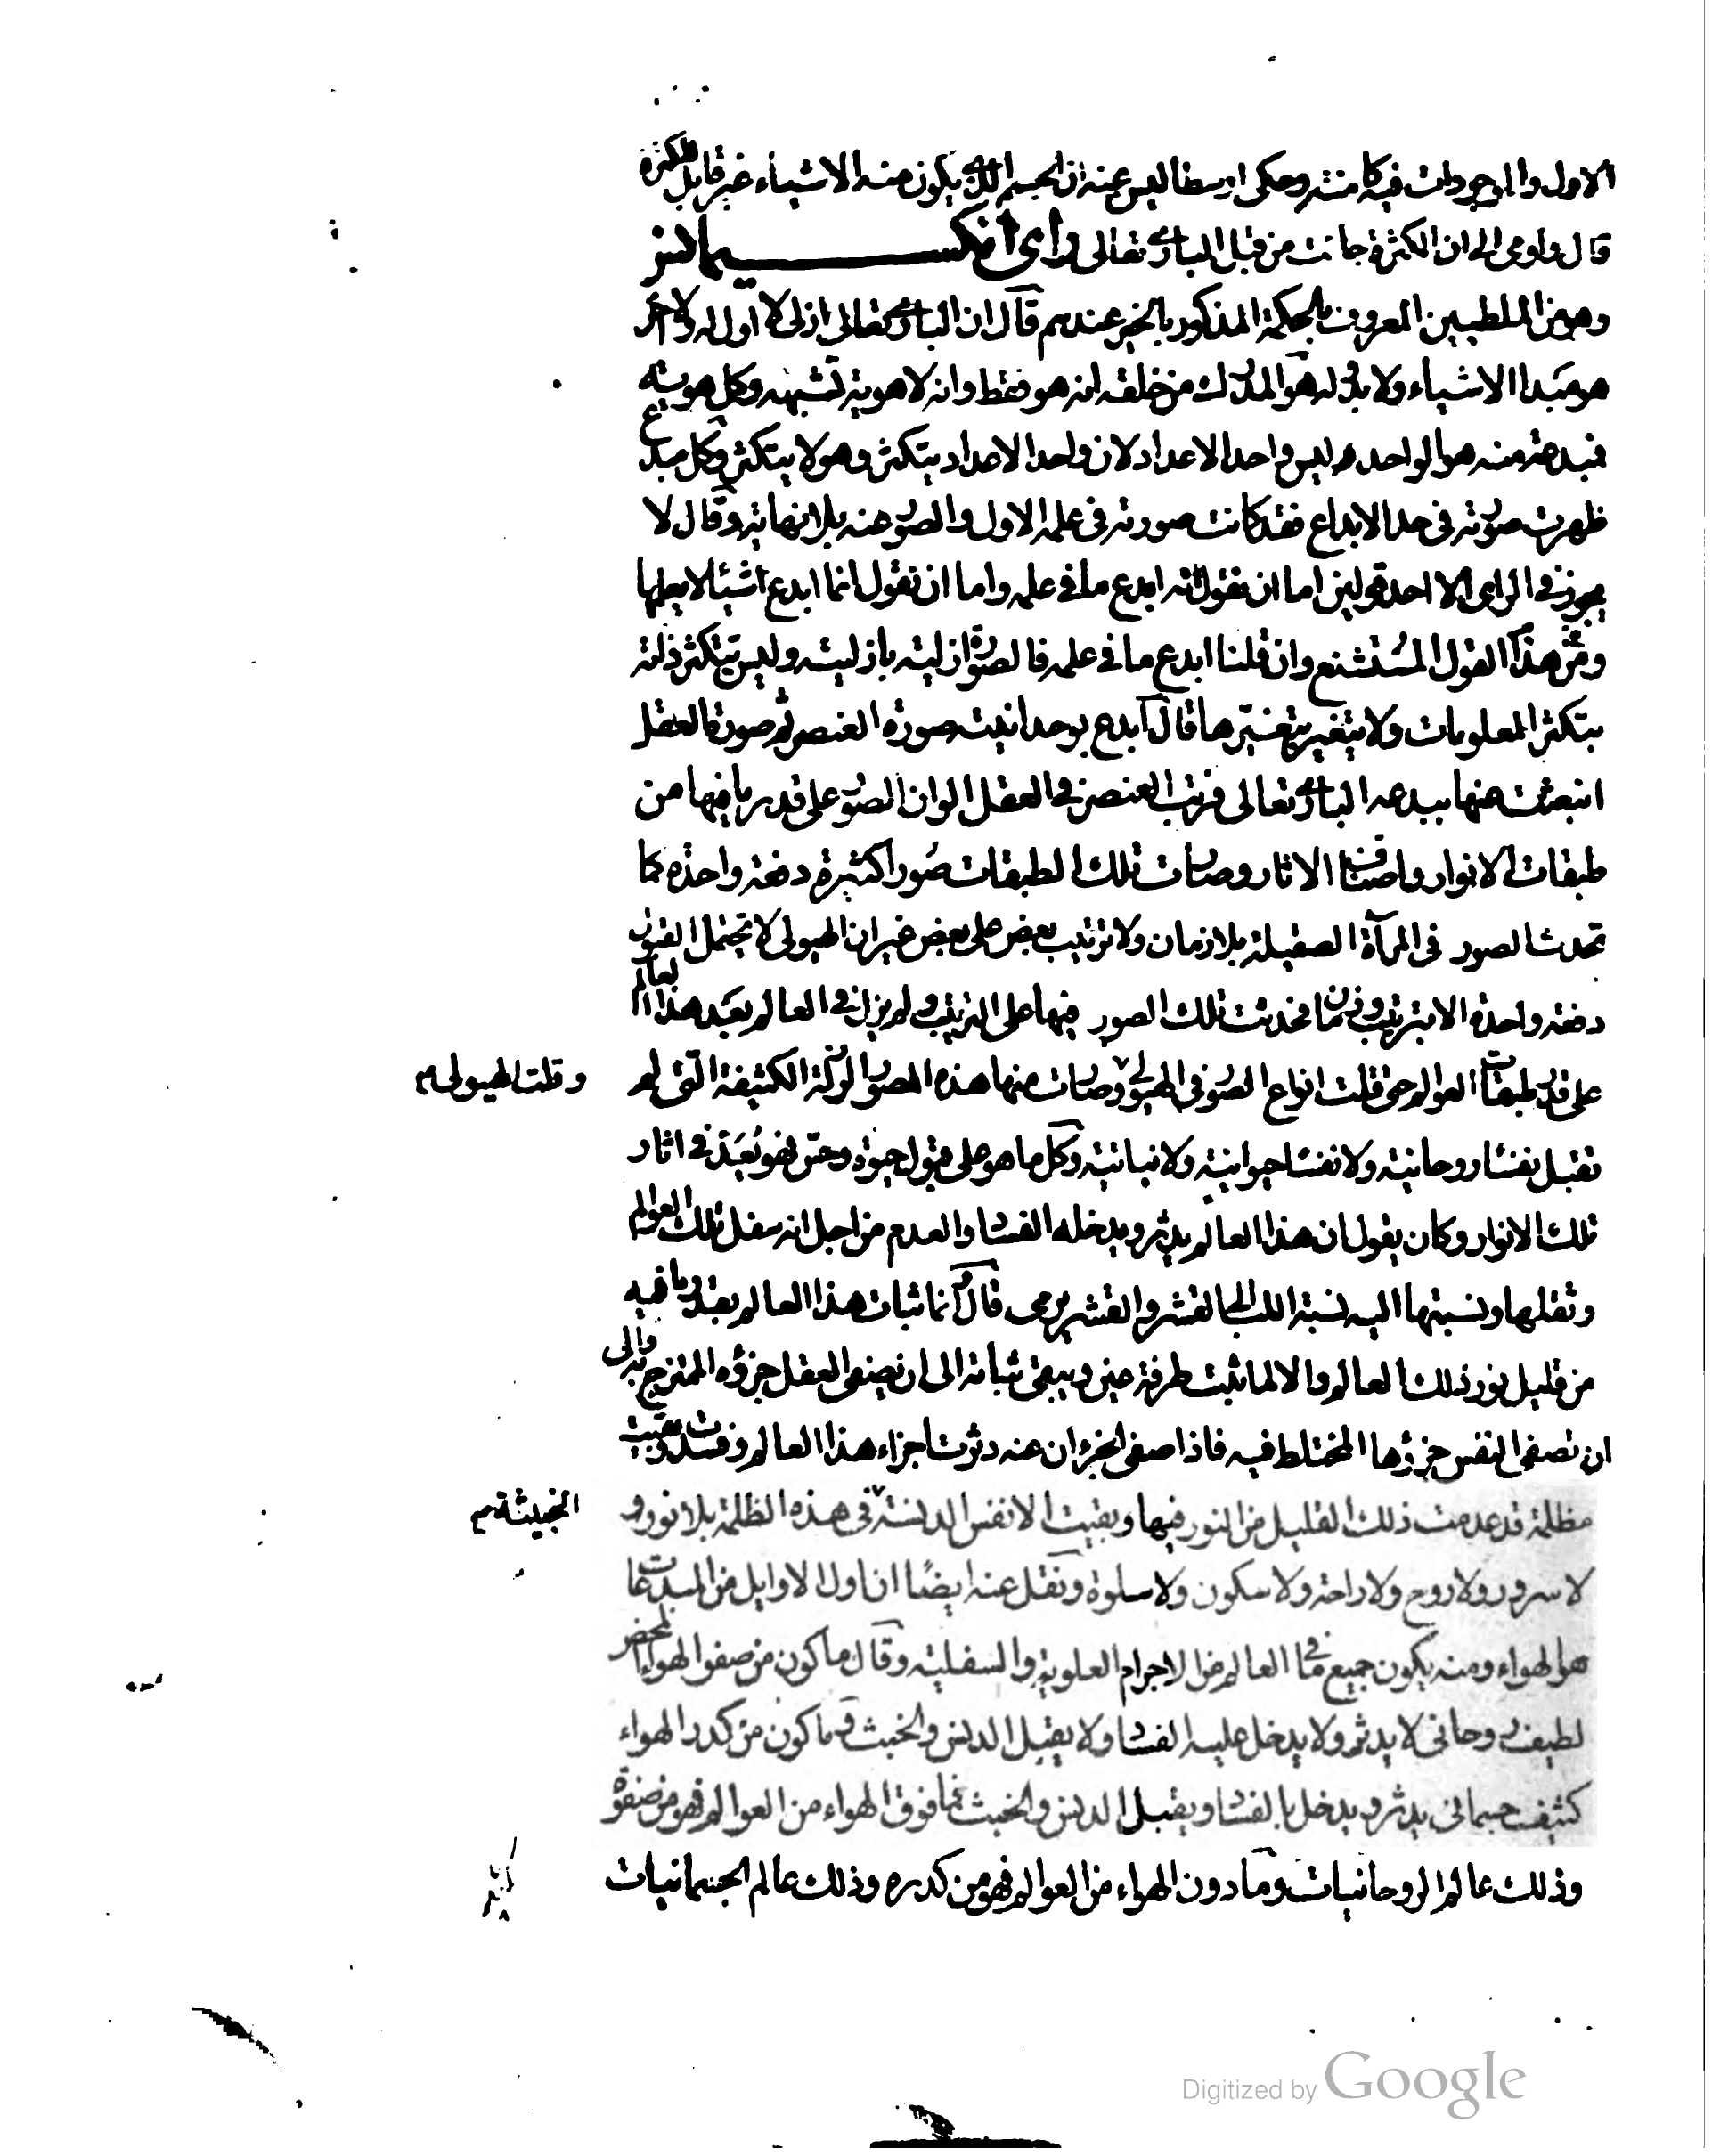 الاول والموجودات فيه كامنة وحكى ارسطاليس عنه ان الجسم الذي يكون منه الاشياء غير قابل للكثرة
قال واومى الى ان الكثرة جائت من قبل البارى تعالى راى انكسيمانس
وهو من الملطيين المعروف بالحكمة المذكور بالخير عندهم قال ان البارى تعالى ازلى لا اول له ولا آخر
هو مبدا الاشياء ولا بدؤ له هو المدرك من خلقه انه هو فقط وانه لا هوية تشبهه وكل هوية
فمبدعة منه هو الواحد ليس واحد الاعداد لان واحد الاعداد يتكثر وهو لا يتكثر وكل مبدع
ظهرت صورته فى حد الابداع فقد كانت صورته فى علمه الاول والصور عنده بلا نهاية وقال لا
يجوز فى الراى الا احد قولين اما ان نقول انه ابدع ما فى علمه واما ان نقول انما ابدع اشيئا لا يعلمها
وهذا القول المستشنع وان قلنا ابدع ما فى علمه فالصورة ازلية بازليته وليس يتكثر ذاته
بتكثر المعلومات ولا يتغير بتغيرها قال ابدع بوحدانيته صورة العنصر ثم صورة العقل
انبعثت عنها ببدعه البارى تعالى فرتب العنصر فى العقل الوان الصور على قدر ما فيها من
طبقات الانوار واصناف الاثار وصارت تلك الطبقات صورا كثيرة دفعة واحدة كما
تحدث الصور فى المرآة الصقيلة بلا زمان ولا ترتيب بعض على بعض غير ان الهيولى لا تحتمل القبول
دفعة واحدة الا بترتيب وزمان فحدثت تلك الصور فيها على الترتيب ولم يزل فى العالم بعد هذا العالم
على قدر طبقات العوالم حتى قلت انواع الصور فى الهيولى وصارت منها هذه الصورة الرذلة الكثيفة التى لم
وقلت الهيولى
تقبل نفسا روحانية ولا نفسا حيوانية ولا نباتية وكل ما هو على قبول حيوة وحس فهو بعد فى اثار
تلك الانوار وكان يقول ان هذا العالم يدثر ويدخله الفساد والعدم من اجل انه سفل تلك العوالم
وثقلها ونسبتها اليه نسبة اللب الى القشر والقشر يرمى قال وانما ثبات هذا العالم بقدر ما فيه
من قليل نور ذلك العالم والا لما ثبت طرفة عين ويبقى ثباته الى ان يصفى العقل جزؤه الممتزج به والى
ان تصفى النفس جزؤها المختلط فيه فاذا صفى الجزءان عنه دثرت اجزاء هذا العالم وفسدت وبقيت
مظلمة قد عدمت ذلك القليل من النور فيها وبقيت الانفس الدنسة فى هذه الظلمة بلا نور و
الخبيثة
لا سرور ولا روح ولا راحة ولا سكون ولا سلوة ونقل عنه ايضا ان اول الاوايل من المبدعات
هو الهواء ومنه يكون جميع ما فى العالم من الاجرام العلوية والسفلية وقال ما كون من صفو الهواء المحض
لطيف روحانى لا يدثر ولا يدخل عليه الفساد ولا يقبل الدنس والخبث وما كون من كدر الهواء
كثيف جسمانى يدثر ويدخل بالفساد ويقبل الدنس والخبث فما فوق الهواء من العوالم فهو من صفوه
وذلك عالم الروحانيات وما دون الهواء من العوالم فهو من كدره وذلك عالم الجسمانيات
Digitized by Google